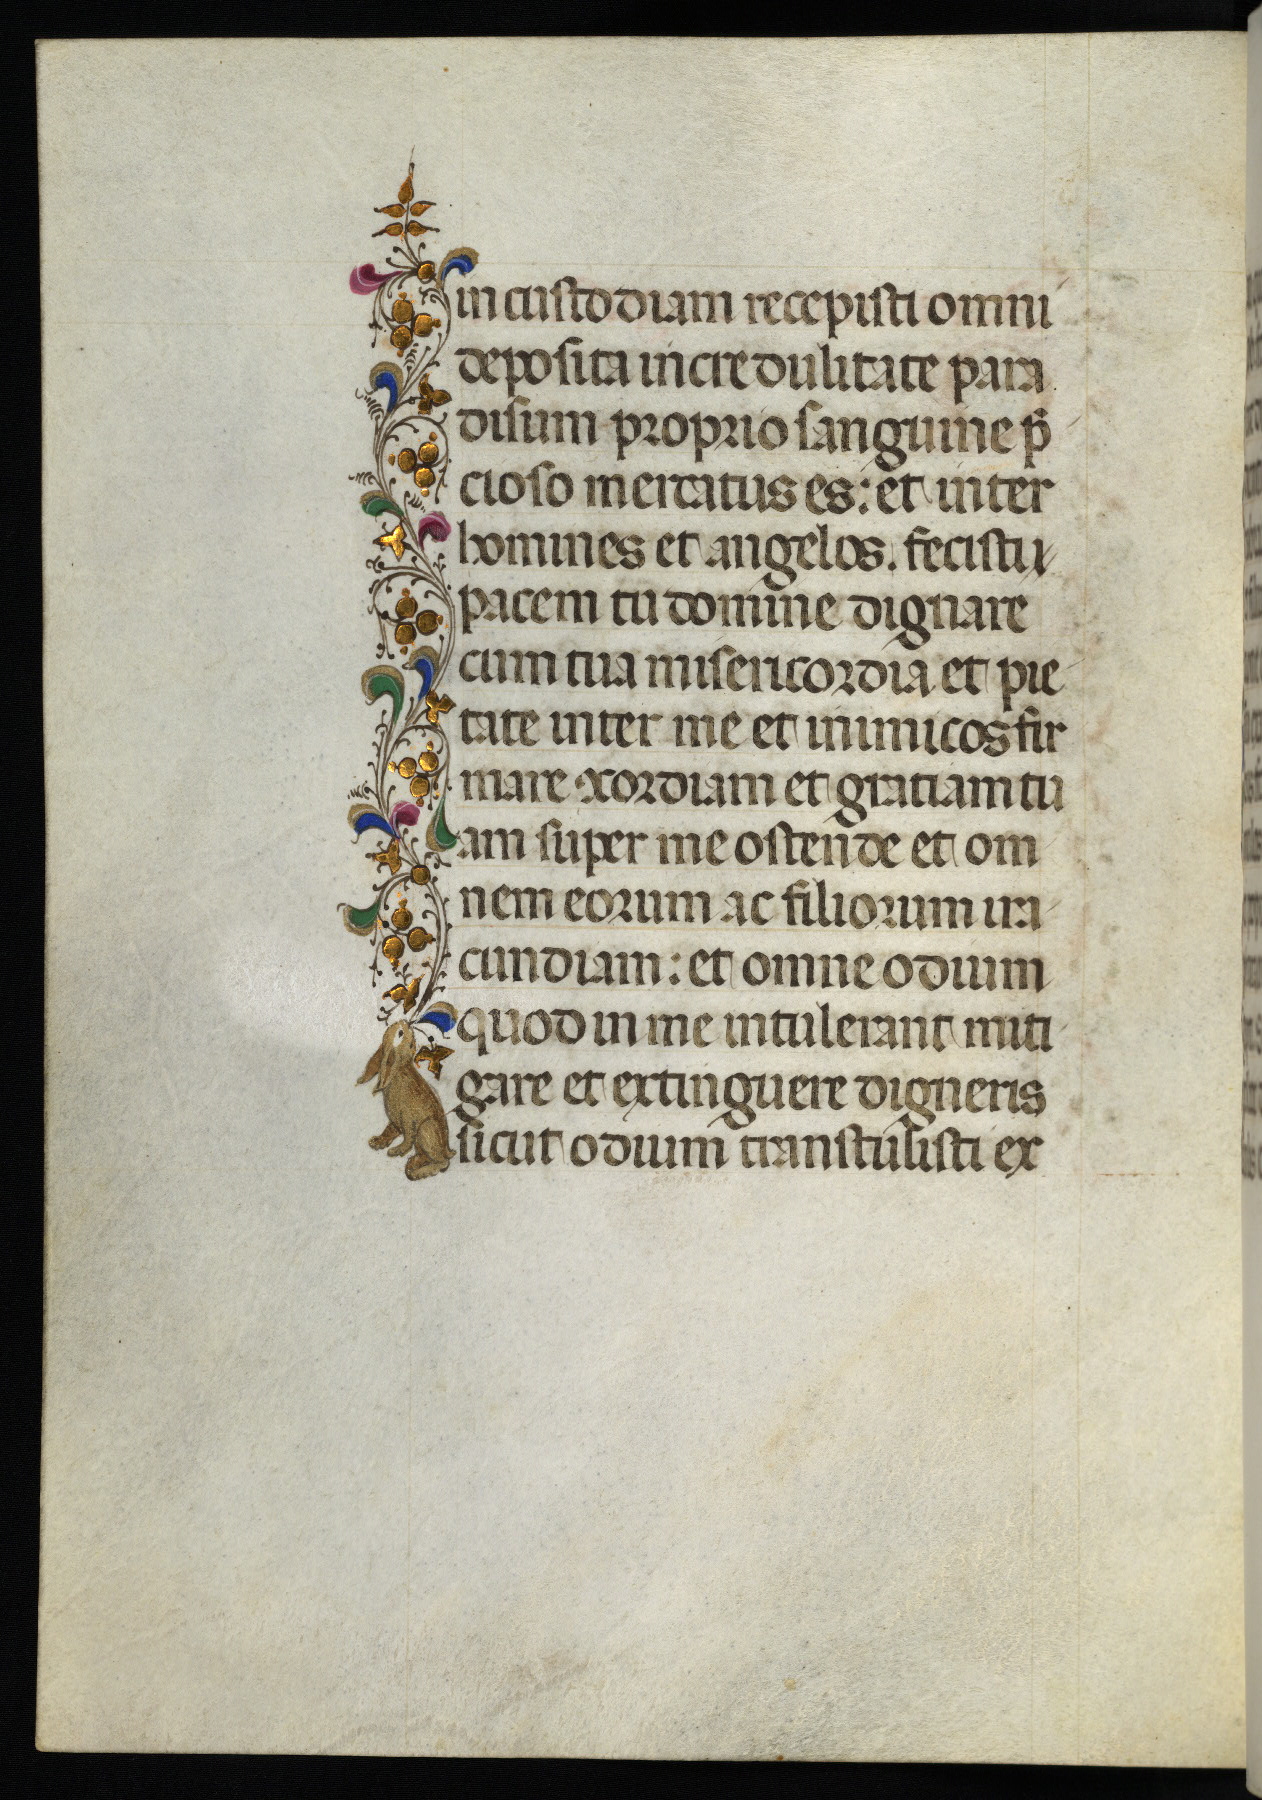 in custodiam recepisti omni
deposita incredulitate para
disum proprio sanguine p̄
cioso mercatus es: et inter
homines et angelos. fecistu
pacem tu domine dignare
cum tua misericordia et pie
tate inter me et inimicos fir
mare xordiam et gratiam tu
am super me ostende et om
nem eorum ac filiorum ira
cundiam: et omne odium
quod in me intulerant miti
gare et extinguere digneris
sicut odium transtulisti ex